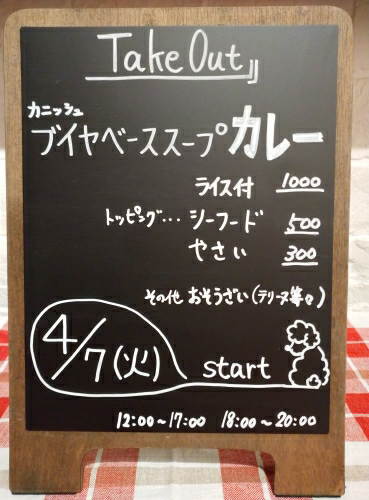 Take Out
カニッシュ
ブイヤベーススープカレー
ライス付 1000
トッピング… シーフード 500
やさい 300
その他 おそうざい(テリーヌ等々)
4/7(火) start
12:00~17:00 18:00~20:00